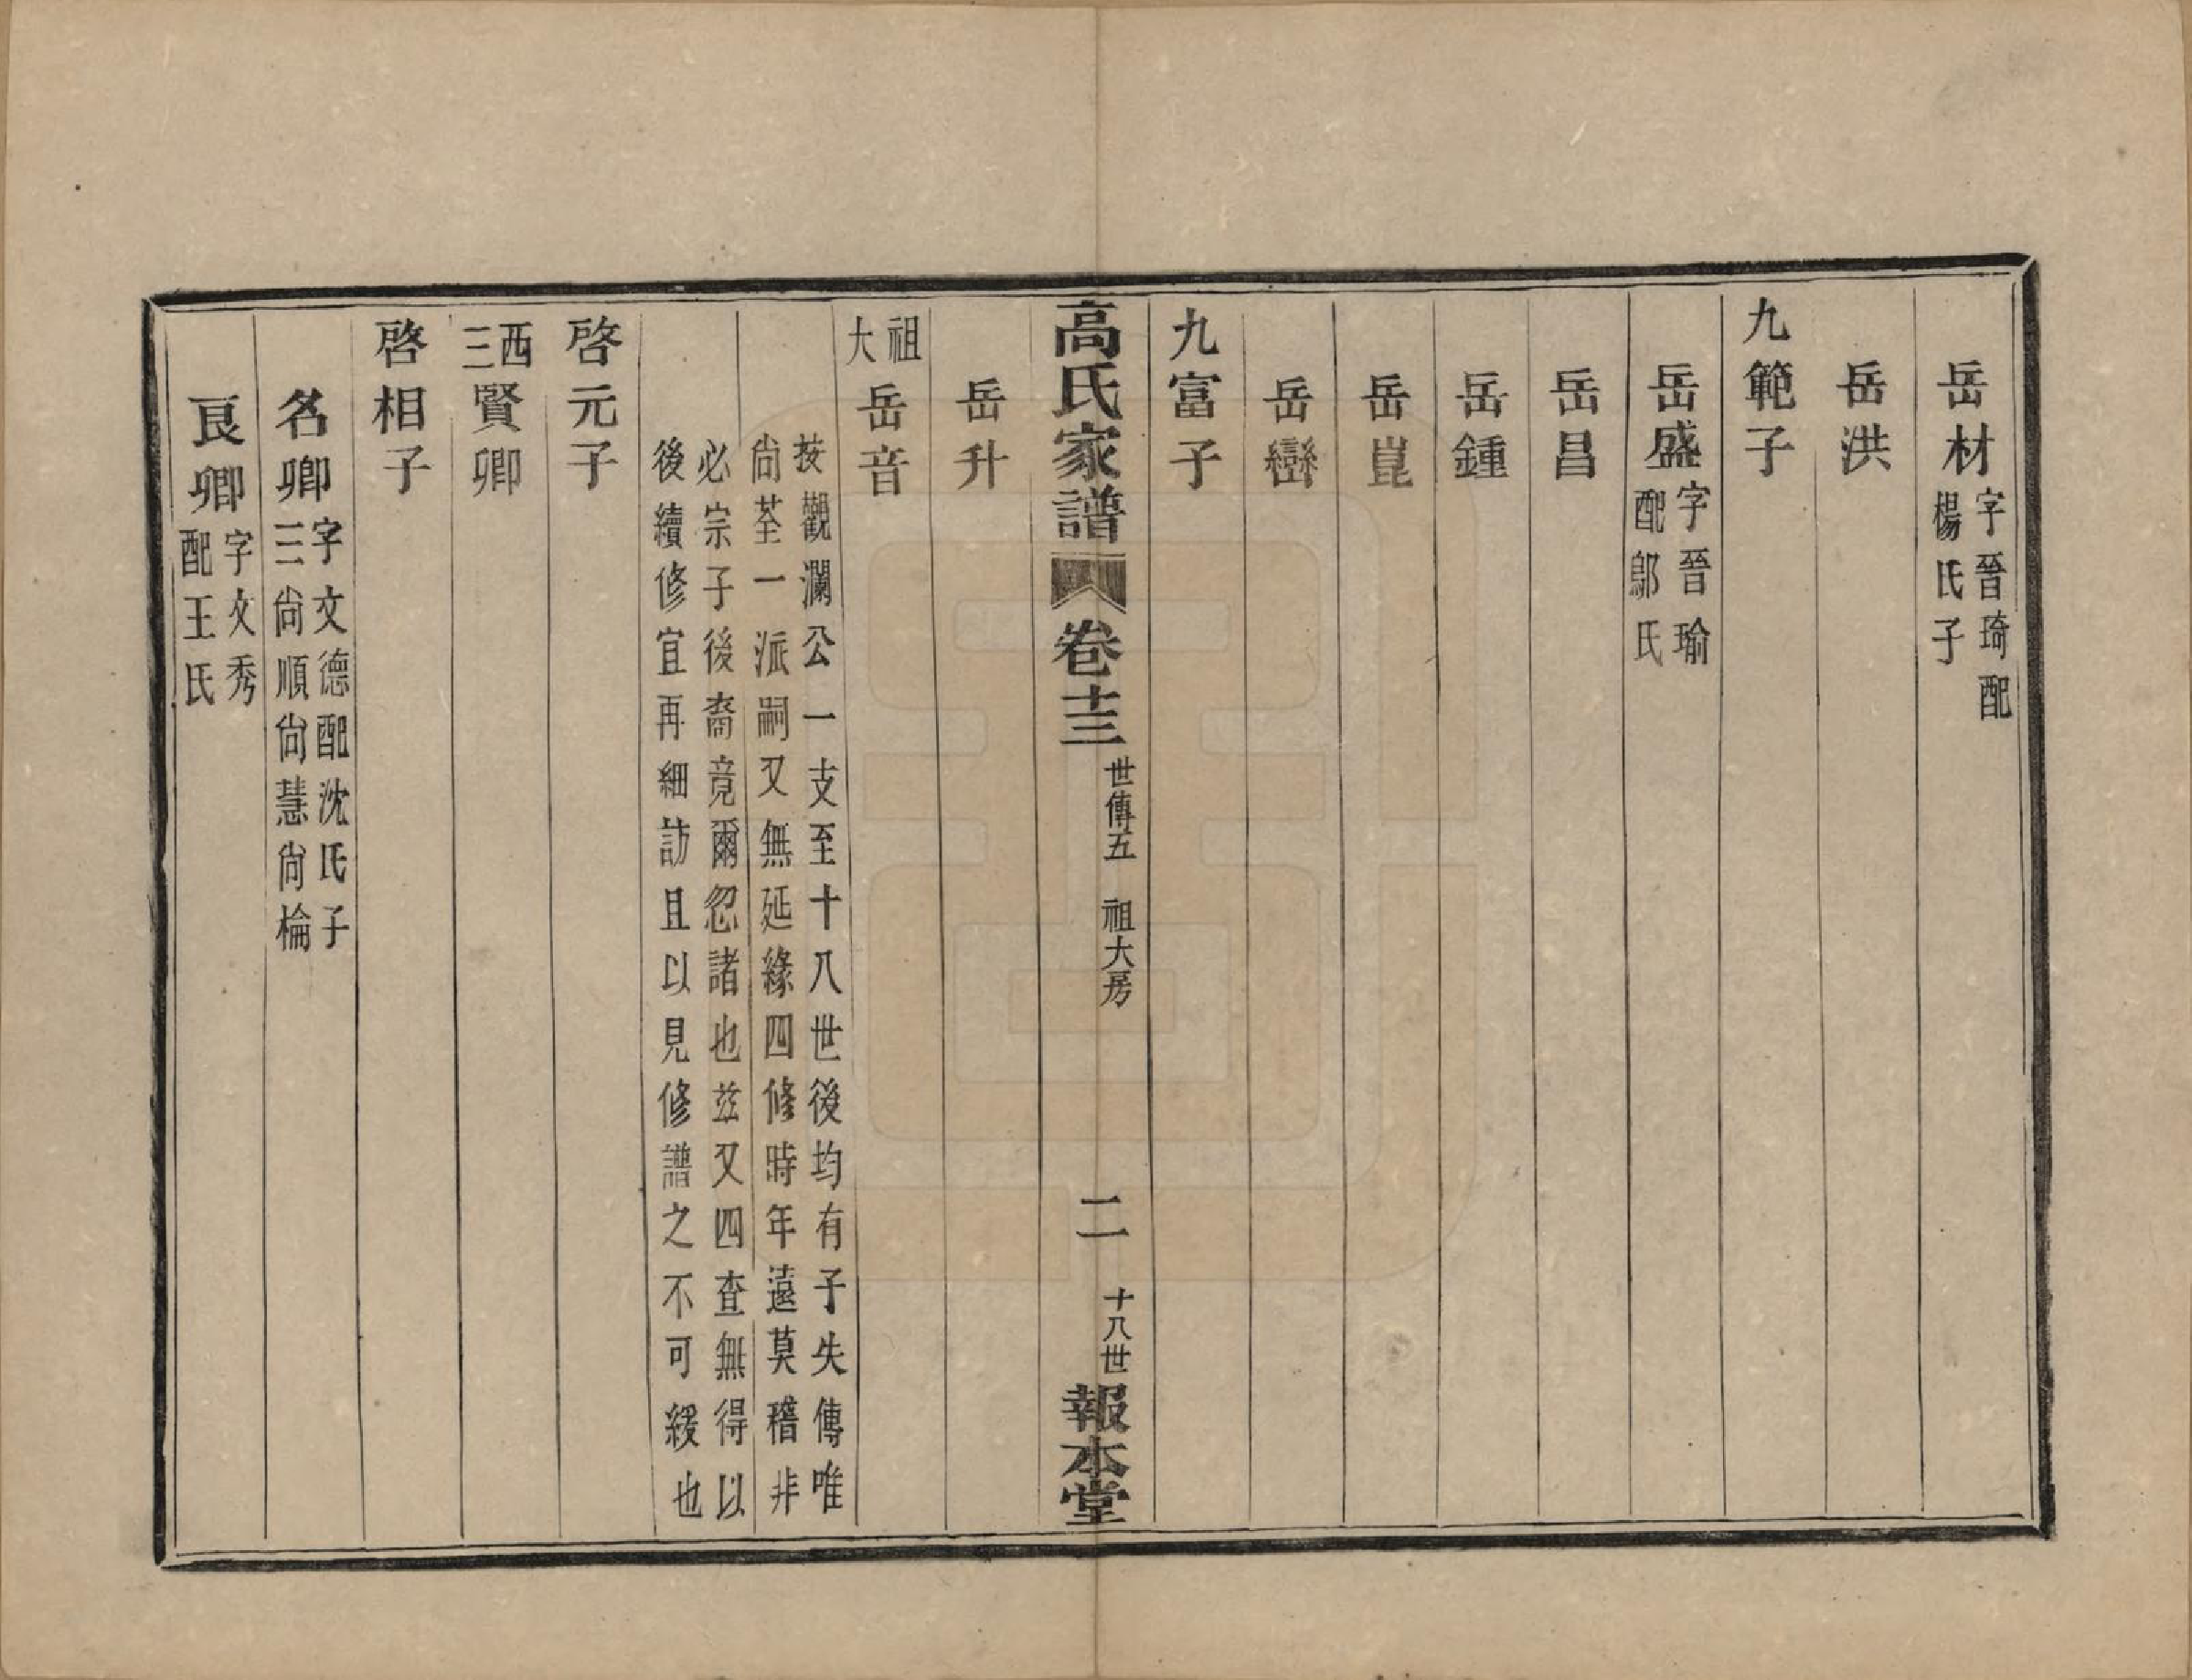 岳材字晉琦配
楊氏子
岳洪
九範子
岳盛字晉瑜
配鄔氏
岳昌
岳鍾
岳崑
岳巒
九富子
高氏家譜 卷十三 世傳五 祖大房 二 十八世 報本堂
岳升
祖大 岳音
按觀瀾公一支至十八世後均有子失傳唯
尙荃一派嗣又無延緣四修時年遠莫稽非
必宗子後裔竟爾忽諸也茲又四查無得以
後續修宜再細訪且以見修譜之不可緩也
啓元子
西三 賢卿
啓相子
名卿字文德配沈氏子
三尙順尙慧尙棆
良卿字文秀
配王氏